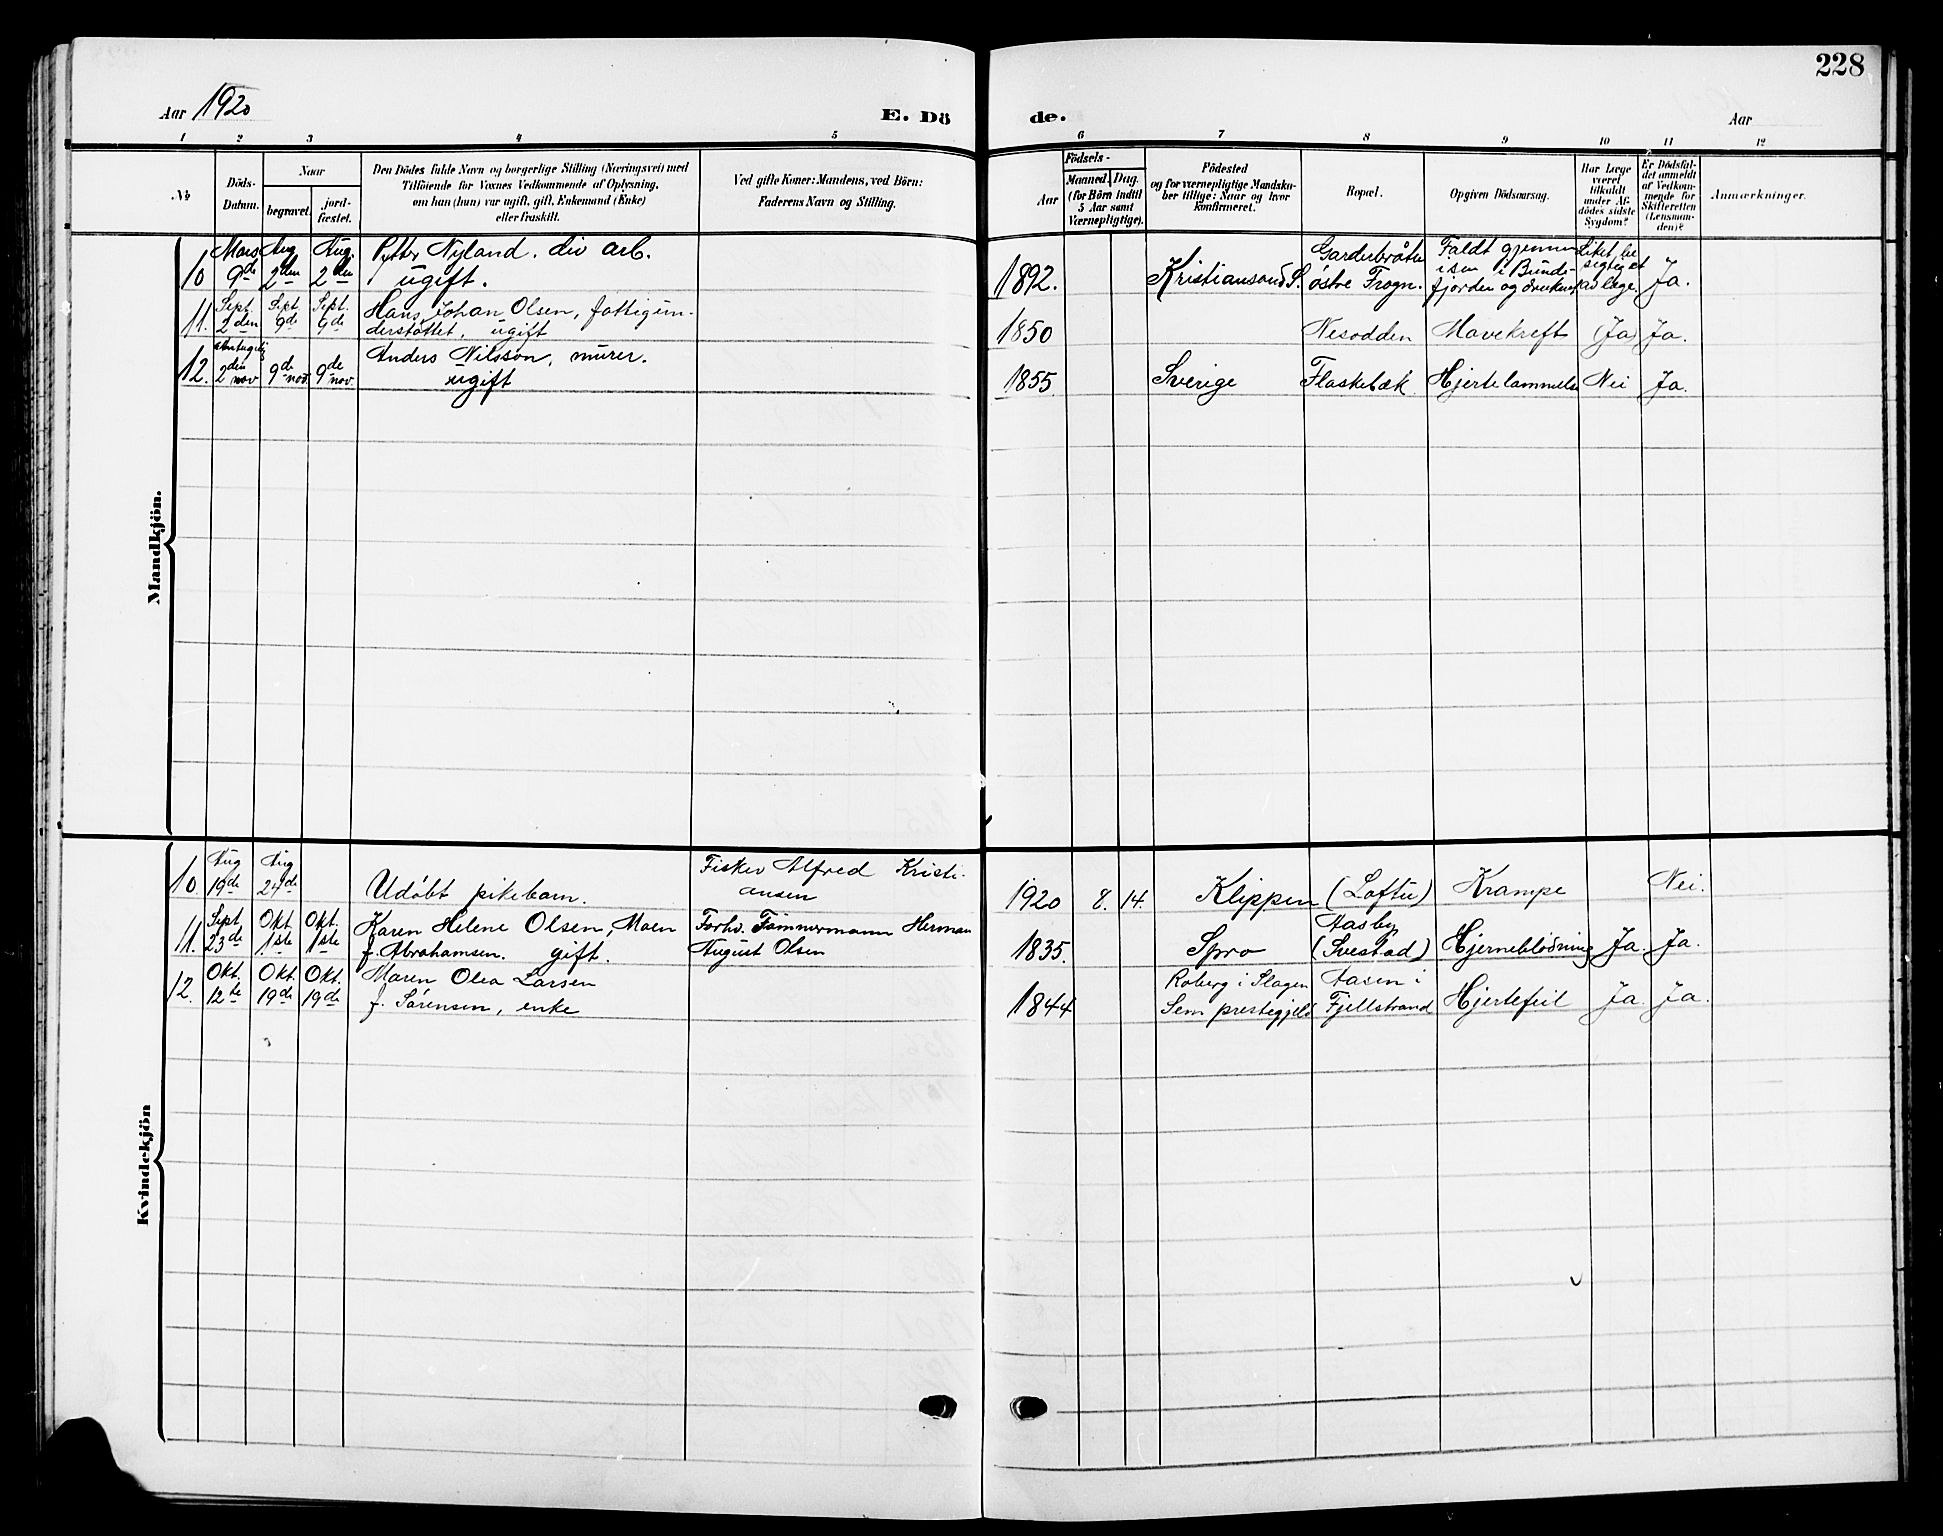 228
Aar 1920
E. Dö
de.
Aar
1 2 3 4 5
6 7 8 9 10 11 12
No
Döds-
Datum.
Naar
begravet.
jord-
fæstet.
Den Dödes fulde Navn og borgerlige Stilling (Næringsvei) med
Tilföiende for Voxnes Vedkommende af Oplysning,
om han (hun) var ugift, gift, Enkemand (Enke)
eller fraskilt.
Ved gifte Koner: Mandens, ved Börn:
Faderens Navn og Stilling.
Födsels-
Aar
Maaned. Dag.
(for Börn indtil
5 Aar samt
Værnepligtige).
Födested
og for værnepligtige Mandska-
ber tillige: Naar og hvor
konfirmeret.
Bopæl.
Opgiven Dödsaarsag.
Har Læge
været
tilkaldt
under Af-
dödes sidste
Sygdom?
Er Dödsfal-
det anmeldt
af Vedkom-
mende for
Skifteretten
(Lensman-
den)?
Anmærkninger.
Mandkjön.
10 Mars 9de Aug 2den Aug. 2den Petter Nyland. div arb.
ugift.
1892. Kristiansand S. Garderbråten østre Frogn. Faldt gjennem
isen i Bunde-
fjorden og druknet Liket be
sigtiget
av læge. Ja.
11. Sept. 2den Sept. 9de Sept. 9de Hans Johan Olsen, fattigun-
derstøttet, ugift
1850 Nesodden Mavekreft (Ja) Ja.
12. antagelig 2den nov 9de nov. 9de nov. Anders Nilsson, murer.
ugift
1855. Sverige Flaskebæk. Hjertelammelse Nei Ja.
Kvindekjön
10. Aug 19de Aug 24de Udøbt pikebarn. Fisker Alfred Kristi-
ansen
1920 8. 14. Klippen (Loftu) Krampe Nei.
11. Sept 23de Okt. 1ste Okt. 1ste Karen Helene Olsen, Moen
f. Abrahamsen. gift.
Forhv. Tømmermann Herman
August Olsen
1835. Spro Aasby
(Svestad) Hjerneblødning Ja. Ja.
12. Okt. 12te Okt. 19de Okt. 19de Maren Olea Larsen
f. Sørensen, enke
1844 Roberg i Slagen
Sem prestegjeld Aasen i
Fjellstrand Hjertefeil Ja. Ja.